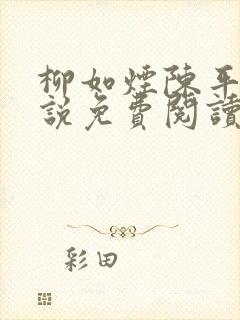 柳如煙陳平
說免費閱讀
彩田